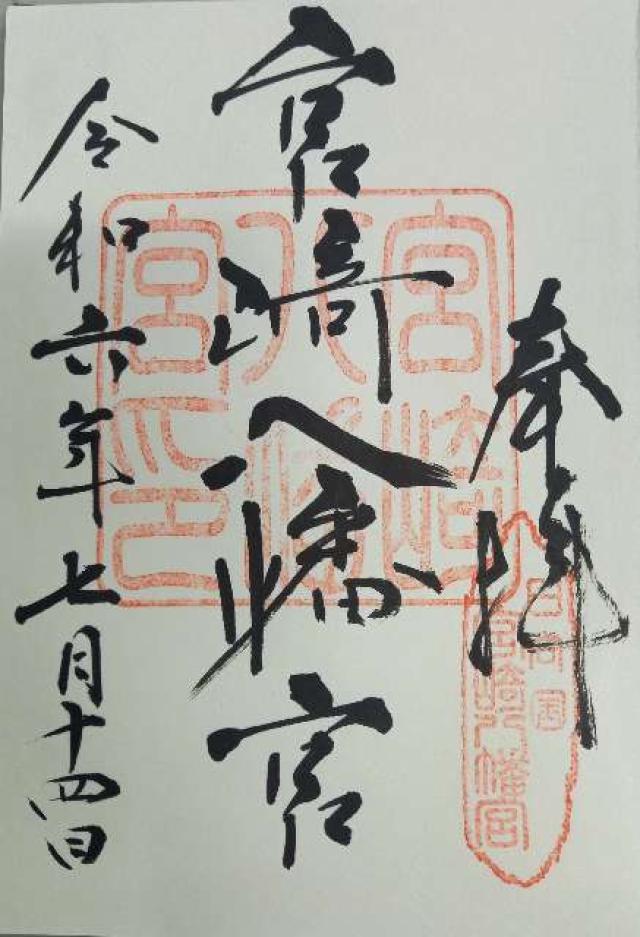 奉拝
日向国
宮崎八幡宮
宮崎八幡宮印
宮崎八幡宮
令和六年七月十四日